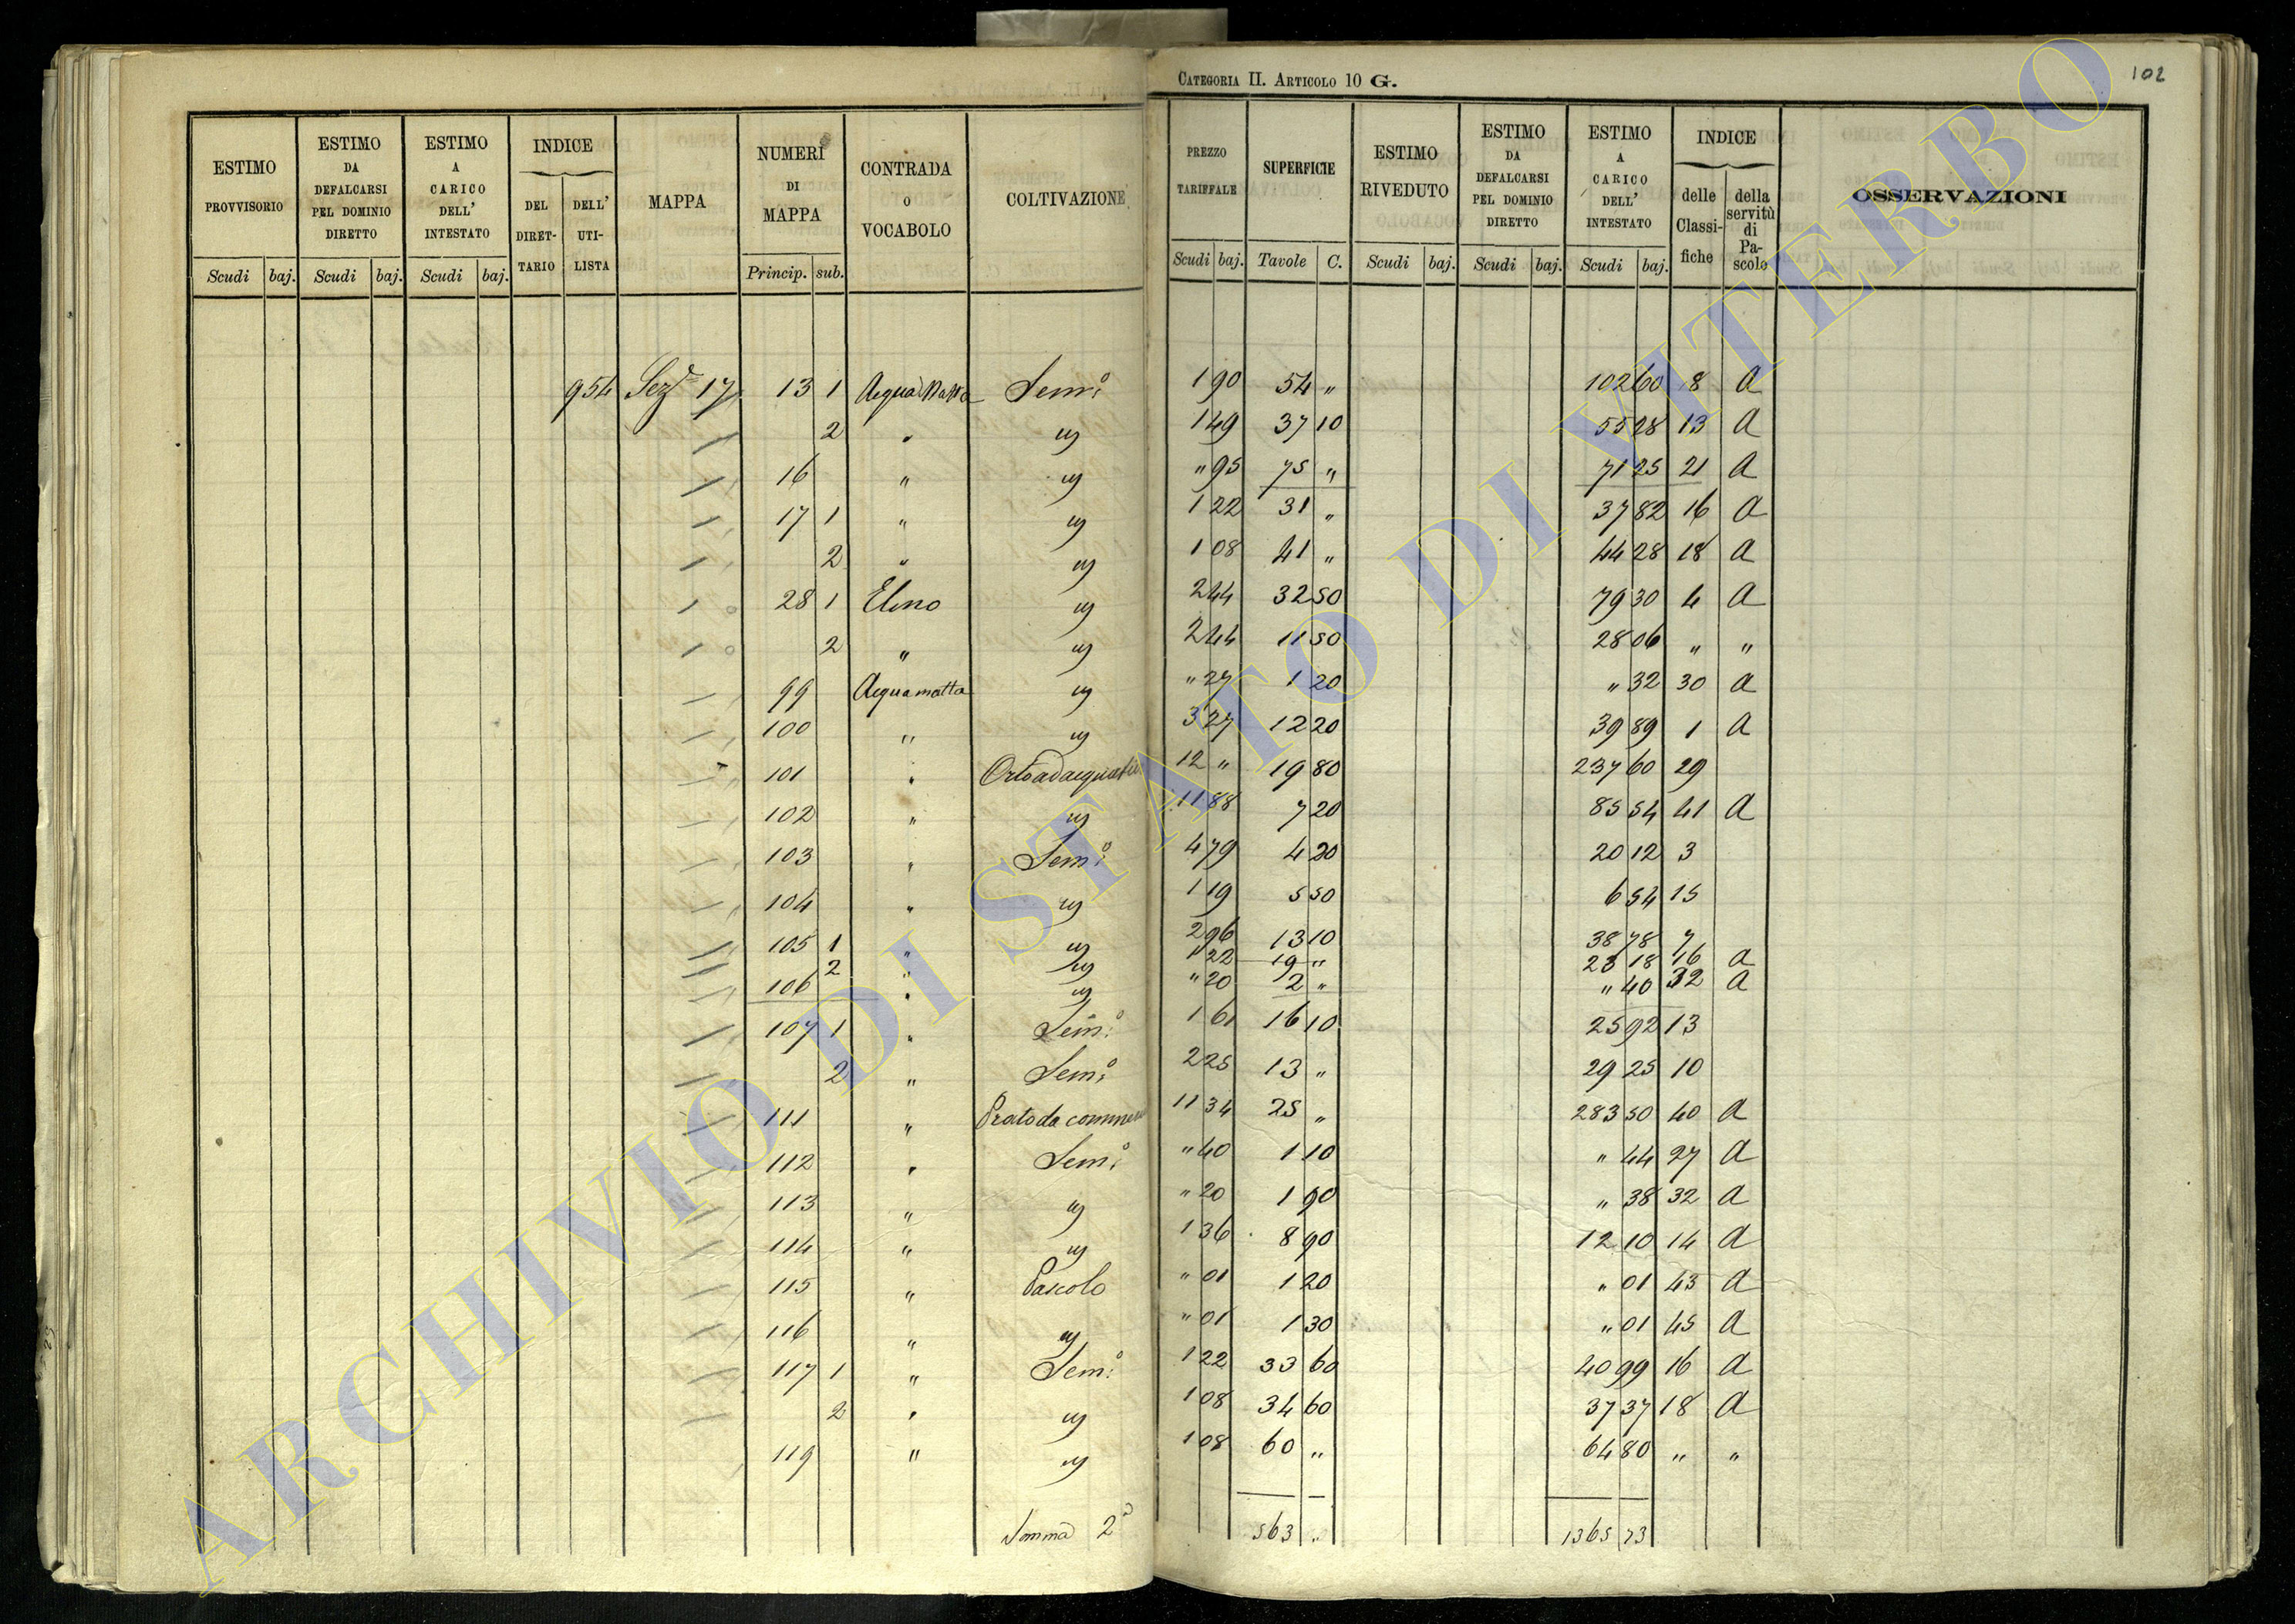 CATEGORIA II. ARTICOLO 10 G.
102
ESTIMO PROVVISORIO | ESTIMO DA DEFALCARSI PEL DOMINIO DIRETTO | ESTIMO A CARICO DELL' INTESTATO | INDICE DEL DIRETTARIO | DELL' UTILISTA | MAPPA | NUMERI DI MAPPA | CONTRADA O VOCABOLO | COLTIVAZIONE | PREZZO TARIFFALE | SUPERFICIE | ESTIMO RIVEDUTO | ESTIMO DA DEFALCARSI PEL DOMINIO DIRETTO | ESTIMO A CARICO DELL' INTESTATO | INDICE delle Classifiche | della servitù di Pascolo | OSSERVAZIONI
Scudi baj. Scudi baj. Scudi baj. Princip. sub. Scudi baj. Tavole C. Scudi baj. Scudi baj. Scudi baj.
954 Sez.e 17 13 1 Acqua Matta Sem:o 1 90 54 „ 102 60 8 A
2 „ „ 1 49 37 10 55 28 13 A
16 „ „ „ 95 75 „ 71 25 21 A
17 1 „ „ 1 22 31 „ 37 82 16 A
2 „ „ 1 08 41 „ 44 28 18 A
28 1 Elmo „ 2 44 32 50 79 30 4 A
2 „ „ 2 44 11 50 28 06 „ „
99 Acquamatta „ „ 27 1 20 „ 32 30 A
100 „ „ 3 27 12 20 39 89 1 A
101 „ Orto adacquativo 12 „ 19 80 237 60 29
102 „ „ 11 88 7 20 85 54 41 A
103 „ Sem:o 4 79 4 20 20 12 3
104 „ „ 1 19 5 50 6 54 15
105 1 „ „ 2 96 13 10 38 78 7
2 „ „ 1 22 19 „ 23 18 16 A
106 „ „ „ 20 2 „ „ 40 32 A
107 1 „ Sem:o 1 61 16 10 25 92 13
2 „ Sem:o 2 25 13 „ 29 25 10
111 „ Prato da commercio 11 34 25 „ 283 50 40 A
112 „ Sem:o „ 40 1 10 „ 44 27 A
113 „ „ „ 20 1 90 „ 38 32 A
114 „ „ 1 36 8 90 12 10 14 A
115 „ Pascolo „ 01 1 20 „ 01 43 A
116 „ „ „ 01 1 30 „ 01 45 A
117 1 „ Sem:o 1 22 33 60 40 99 16 A
2 „ „ 1 08 34 60 37 37 18 A
119 „ „ 1 08 60 „ 64 80 „ „
Somma 2a 563 „ 1365 73
ARCHIVIO DI STATO DI VITERBO